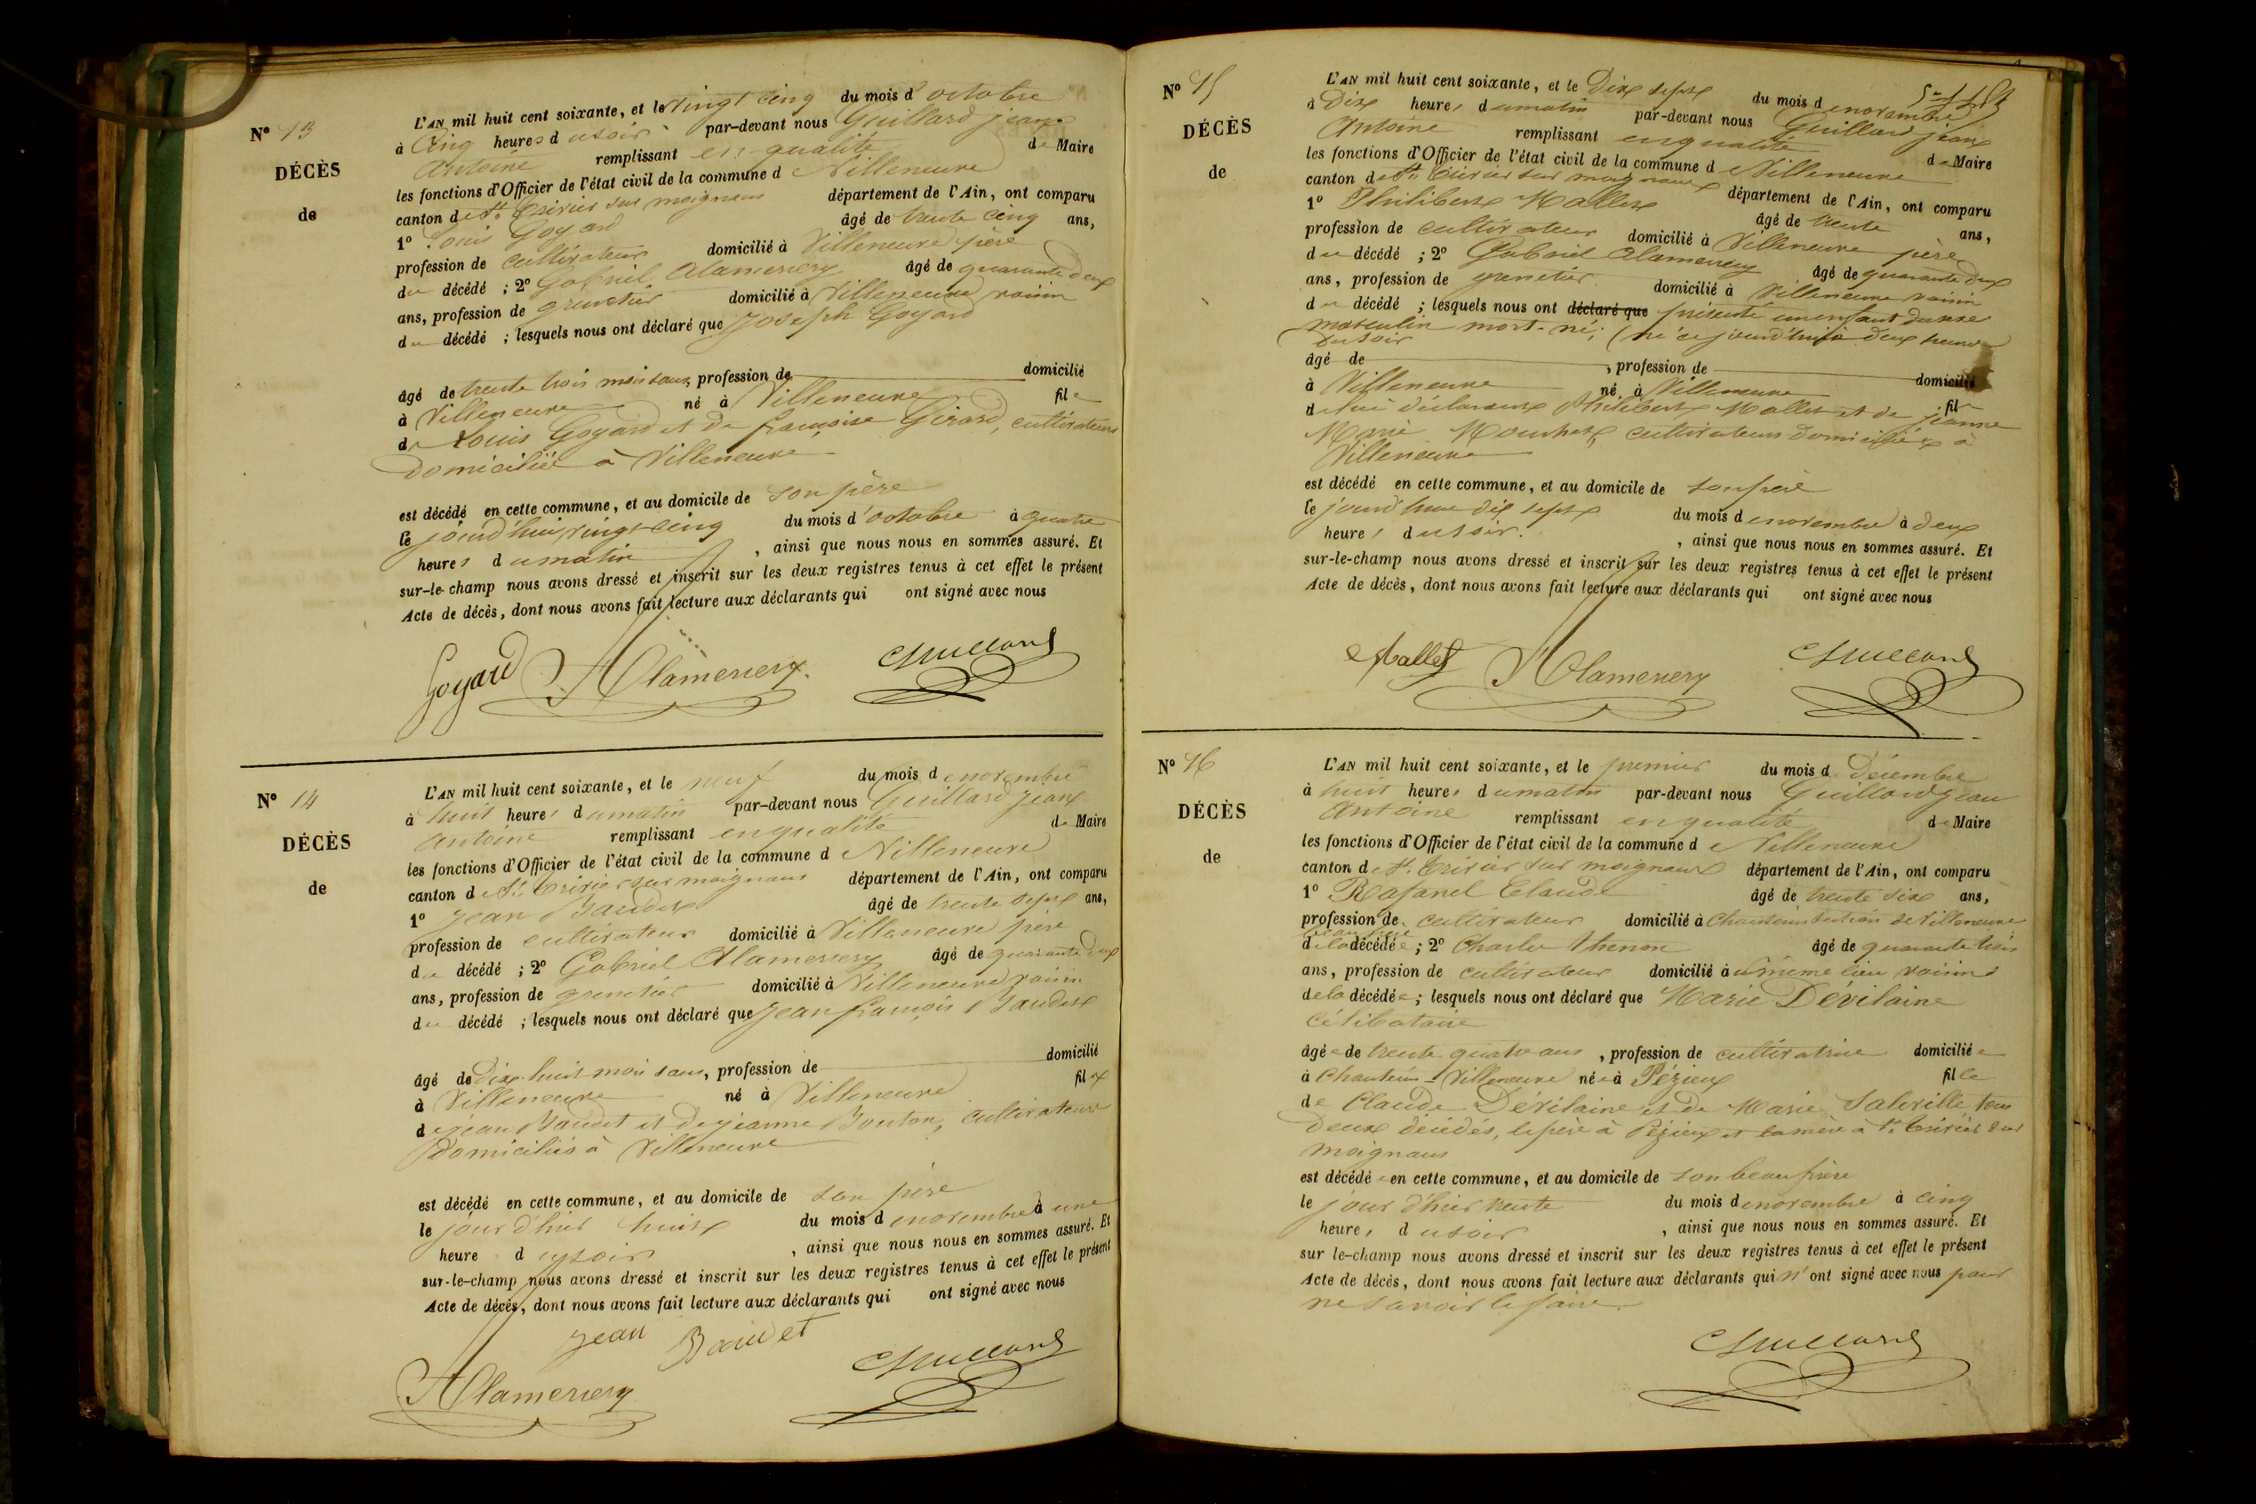 N° 13
DÉCÈS
de
L'AN mil huit cent soixante, et le vingt cinq du mois d'octobre
à Cinq heures du soir par-devant nous Guillard jean
Antoine remplissant en qualité de Maire
les fonctions d'Officier de l'état civil de la commune de Villeneuve
canton de St. Trivier sur moignans département de l'Ain, ont comparu
1° Louis Goyard âgé de trente cinq ans,
profession de cultivateur domicilié à Villeneuve père
du décédé ; 2° Gabriel Alamercery âgé de quarante deux
ans, profession de grenetier domicilié à Villeneuve voisin
du décédé ; lesquels nous ont déclaré que Joseph Goyard
âgé de trente trois mois sans profession de domicilié
à Villeneuve né à Villeneuve fils
de Louis Goyard et de françoise Girard, cultivateurs
domiciliés à Villeneuve
est décédé en cette commune, et au domicile de son père
le jourd'hui vingt cinq du mois d'octobre à quatre
heures du matin , ainsi que nous nous en sommes assuré. Et
sur-le-champ nous avons dressé et inscrit sur les deux registres tenus à cet effet le présent
Acte de décès, dont nous avons fait lecture aux déclarants qui ont signé avec nous
Goyard Alamercery Guillard
N° 14
DÉCÈS
de
L'AN mil huit cent soixante, et le neuf du mois de novembre
à huit heures du matin par-devant nous Guillard jean
antoine remplissant en qualité de Maire
les fonctions d'Officier de l'état civil de la commune de Villeneuve
canton de St. Trivier sur moignans département de l'Ain, ont comparu
1° Jean Baudet âgé de trente sept ans,
profession de cultivateur domicilié à Villeneuve père
du décédé ; 2° Gabriel Alamercery âgé de quarante deux
ans, profession de grenetier domicilié à Villeneuve voisin
du décédé ; lesquels nous ont déclaré que Jean françois Baudet
âgé de Dix huit mois sans, profession de domicilié
à Villeneuve né à Villeneuve fils
de jean Baudet et de jeanne Bouton, cultivateurs
Domiciliés à Villeneuve
est décédé en cette commune, et au domicile de son père
le jour d'hier huit du mois de novembre à une
heure du soir , ainsi que nous nous en sommes assuré. Et
sur-le-champ nous avons dressé et inscrit sur les deux registres tenus à cet effet le présent
Acte de décès, dont nous avons fait lecture aux déclarants qui ont signé avec nous
Jean Baudet
Alamercery Guillard
N° 15
DÉCÈS
de
L'AN mil huit cent soixante, et le Dix sept du mois de novembre
à Dix heures du matin par-devant nous Guillard jean
Antoine remplissant en qualité de Maire
les fonctions d'Officier de l'état civil de la commune de Villeneuve
canton de St. Trivier sur moignans département de l'Ain, ont comparu
1° Philibert Mallet âgé de trente ans,
profession de cultivateur domicilié à Villeneuve père
du décédé ; 2° Gabriel Alamercery âgé de quarante deux
ans, profession de grenetier domicilié à Villeneuve voisin
du décédé ; lesquels nous ont déclaré que présenté un enfant du sexe
masculin mort-né; (né ce jourd'hui à deux heures
du soir
âgé de , profession de domicilié
à Villeneuve né à Villeneuve fils
de lui déclarant Philibert Mallet et de jeanne
Marie Mouchet, cultivateurs domiciliés à
Villeneuve
est décédé en cette commune, et au domicile de son père
le jourd'hui dix sept du mois de novembre à deux
heures du soir. , ainsi que nous nous en sommes assuré. Et
sur-le-champ nous avons dressé et inscrit sur les deux registres tenus à cet effet le présent
Acte de décès, dont nous avons fait lecture aux déclarants qui ont signé avec nous
Mallet Alamercery Guillard
N° 16
DÉCÈS
de
L'AN mil huit cent soixante, et le premier du mois de Décembre
à huit heures du matin par-devant nous Guillard jean
Antoine remplissant en qualité de Maire
les fonctions d'Officier de l'état civil de la commune de Villeneuve
canton de St. Trivier sur moignans département de l'Ain, ont comparu
1° Rafanel Claude âgé de trente six ans,
profession de cultivateur domicilié à Chanteins section de Villeneuve
beau frère
de la décédée ; 2° Charles Thenon âgé de quarante trois
ans, profession de cultivateur domicilié au même lieu voisin
de la décédée ; lesquels nous ont déclaré que Marie Dévilaine
célibataire
âgée de trente quatre ans , profession de cultivatrice domiciliée
à Chanteins-Villeneuve née à Pézieux fille
de Claude Dévilaine et de Marie Saleville tous
deux décédés, le père à Pézieux et la mère à St. Trivier sur
moignans
est décédée en cette commune, et au domicile de son beau frère
le jour d'hier trente du mois de novembre à cinq
heures du soir , ainsi que nous nous en sommes assuré. Et
sur le-champ nous avons dressé et inscrit sur les deux registres tenus à cet effet le présent
Acte de décès, dont nous avons fait lecture aux déclarants qui n'ont signé avec nous pour
ne savoir le faire.
Guillard